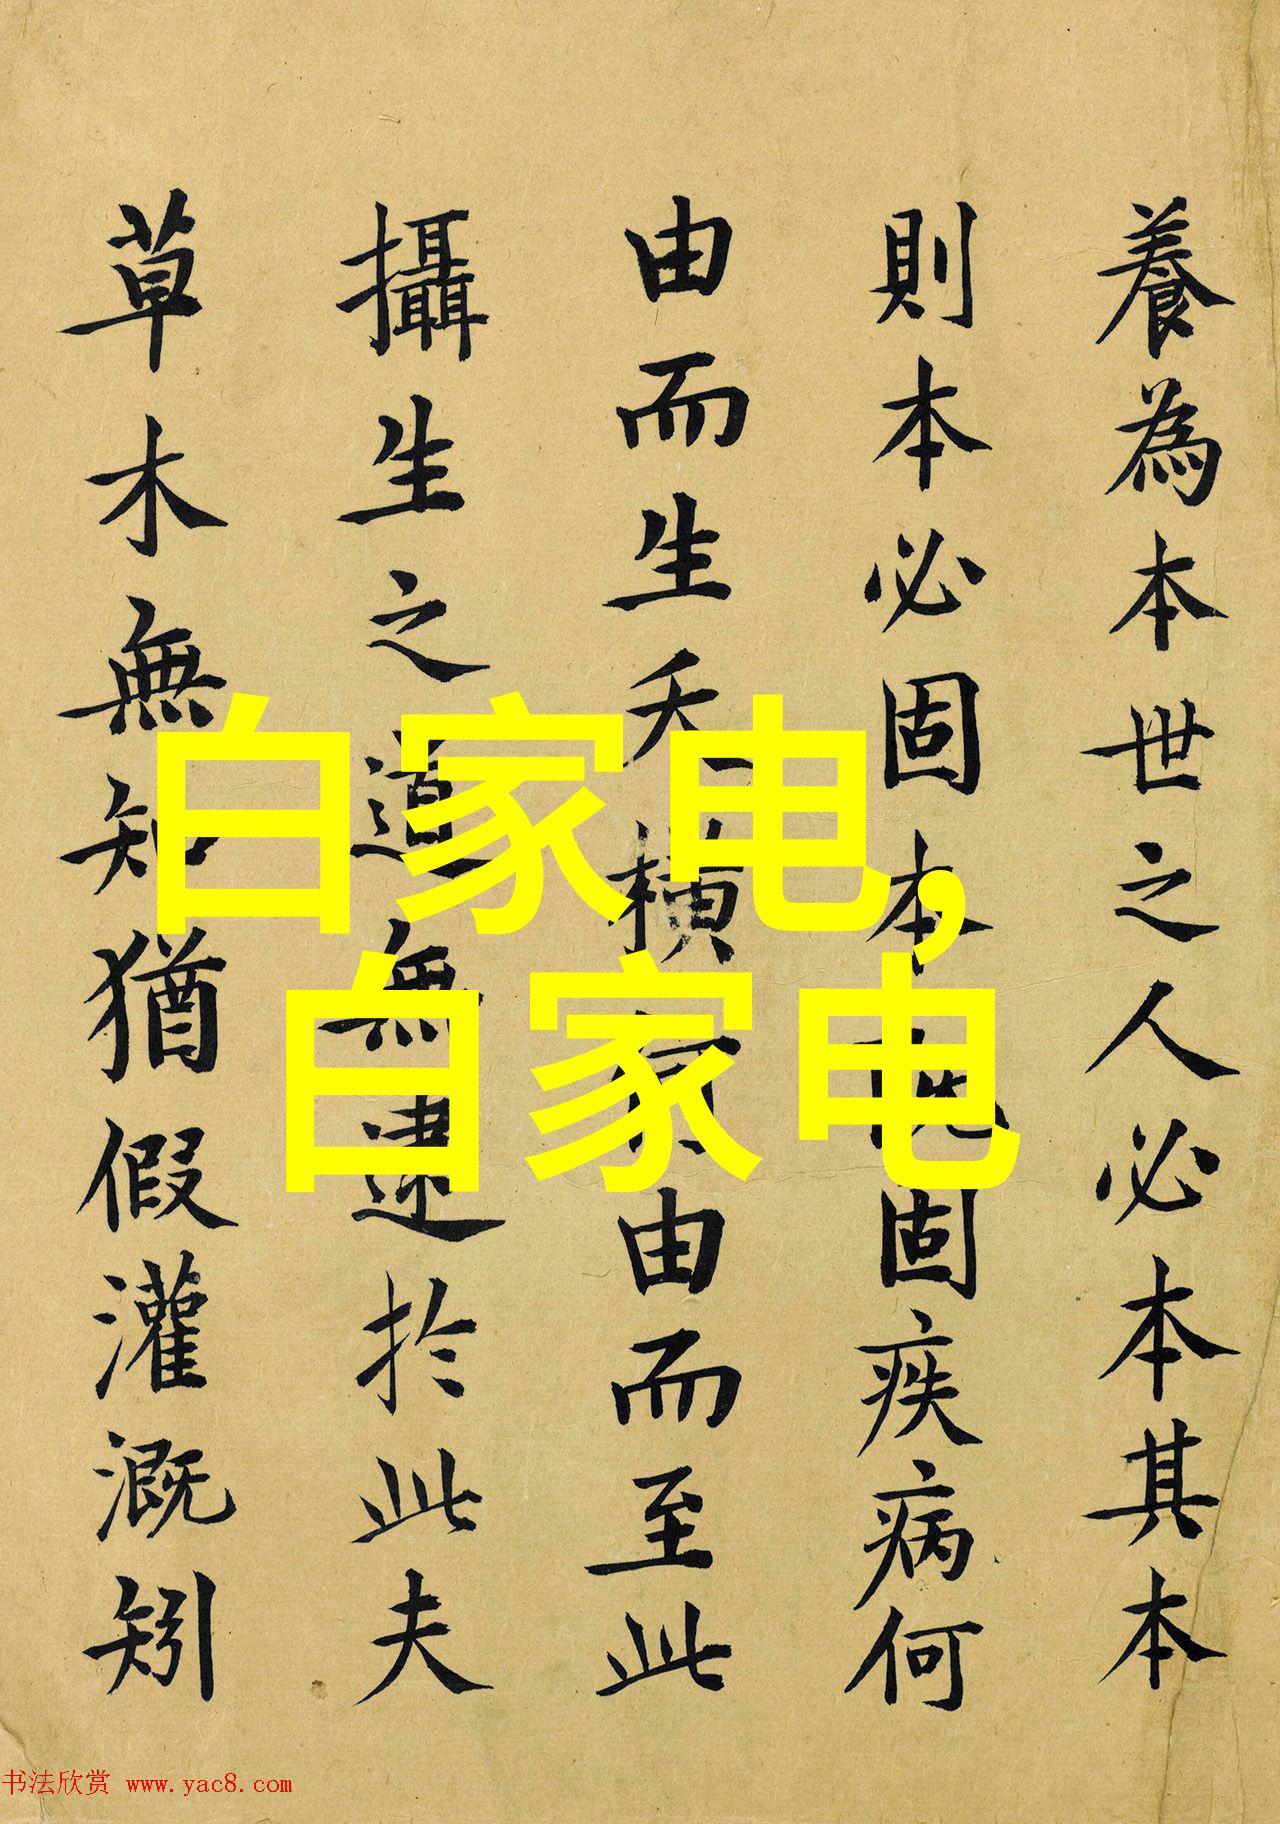 養為本世之人必本其本
則本必固本既固疾病何
由而生夭橫何由而至此
攝生之道無逮於此夫
草木無知猶假灌溉矧
白家电,
白家电
书法欣赏 www.yac8.com